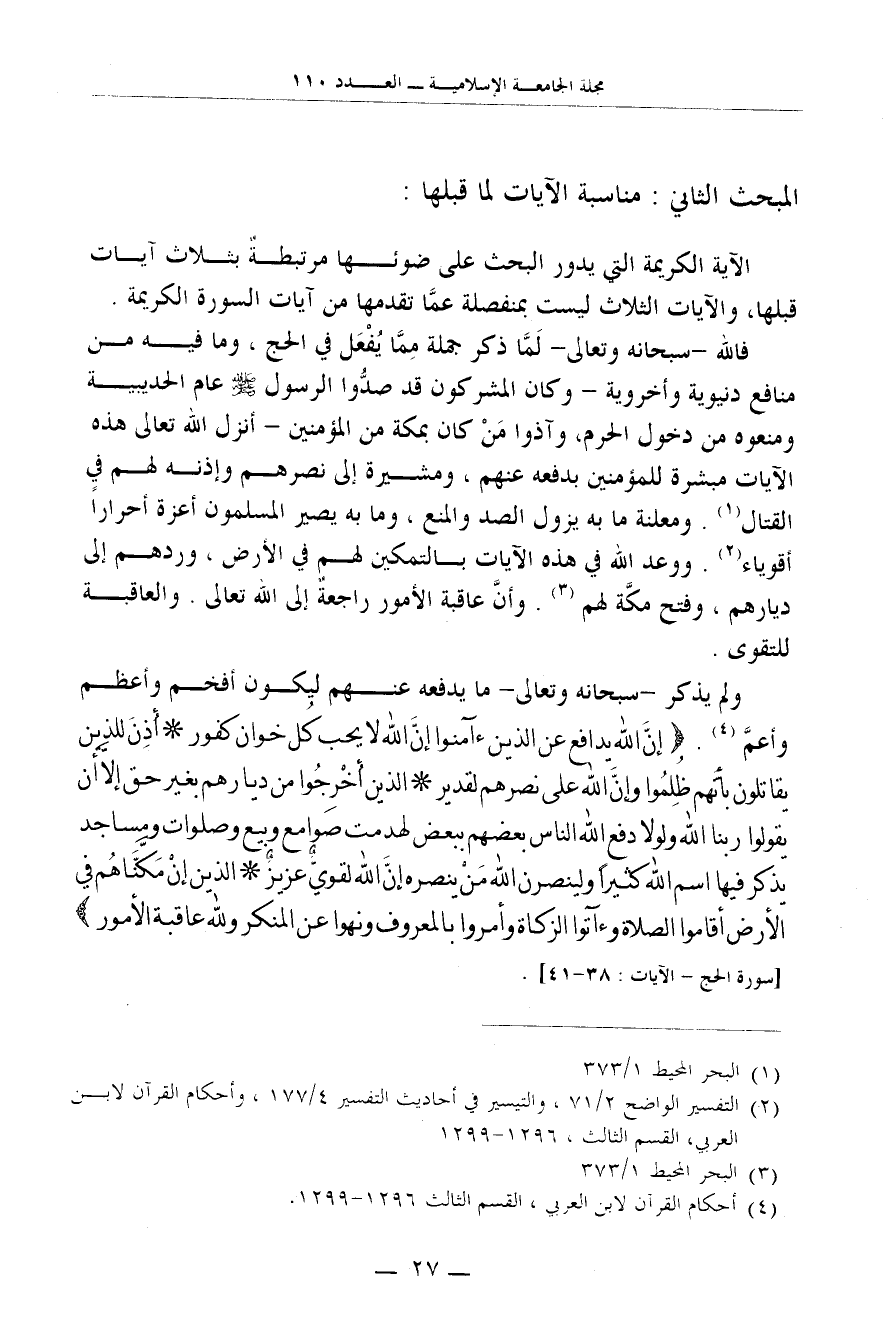 مجلة الجامعة الإسلامية – العدد ١١٠
المبحث الثاني : مناسبة الآيات لما قبلها :
الآية الكريمة التي يدور البحث على ضوئها مرتبطةٌ بثلاث آيات
قبلها، والآيات الثلاث ليست بمنفصلة عمَّا تقدمها من آيات السورة الكريمة .
فالله –سبحانه وتعالى– لَمَّا ذكر جملة مِمَّا يُفْعَل في الحج ، وما فيه من
منافع دنيوية وأخروية – وكان المشركون قد صدُّوا الرسول ﷺ عام الحديبية
ومنعوه من دخول الحرم، وآذوا مَنْ كان بمكة من المؤمنين – أنزل الله تعالى هذه
الآيات مبشرة للمؤمنين بدفعه عنهم ، ومشيرة إلى نصرهم وإذنه لهم في
القتال(١) . ومعلنة ما به يزول الصد والمنع ، وما به يصير المسلمون أعزة أحراراً
أقوياء(٢) . ووعد الله في هذه الآيات بالتمكين لهم في الأرض ، وردهم إلى
ديارهم ، وفتح مكَّة لهم (٣) . وأنَّ عاقبة الأمور راجعةٌ إلى الله تعالى . والعاقبة
للتقوى .
ولم يذكر –سبحانه وتعالى– ما يدفعه عنهم ليكون أفخم وأعظم
وأعمَّ (٤) . ﴿ إنَّ الله يدافع عن الذين ءآمنوا إنَّ الله لا يحب كل خوان كفور * أُذِنَ للذين
يقاتلون بأنهم ظُلِمُوا وإنَّ الله على نصرهم لقدير * الذين أُخْرِجُوا من ديارهم بغير حق إلا أن
يقولوا ربنا الله ولولا دفع الله الناس بعضهم ببعض لهدمت صَوامع وبِيع وصلوات ومساجد
يذكر فيها اسم الله كثيراً ولينصرن الله مَنْ ينصره إنَّ الله لقويٌّ عزيزٌ * الذين إنْ مَكَّنَّاهُم في
الأرض أقاموا الصلاة وءآتوا الزكاة وأمروا بالمعروف ونهوا عن المنكر ولله عاقبة الأمور ﴾
[سورة الحج – الآيات : ٣٨–٤١] .
(١) البحر المحيط ٣٧٣/١
(٢) التفسير الواضح ٧١/٢ ، والتيسير في أحاديث التفسير ١٧٧/٤ ، وأحكام القرآن لابن
العربي، القسم الثالث ، ١٢٩٦–١٢٩٩
(٣) البحر المحيط ٣٧٣/١
(٤) أحكام القرآن لابن العربي ، القسم الثالث ١٢٩٦–١٢٩٩.
— ٢٧ —